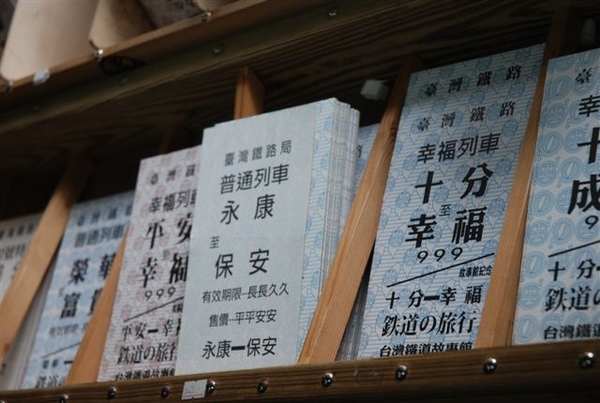 普通列車
榮華
至
富貴
臺灣鐵路
幸福列車
平安
至
幸福
999
平安━幸福
鉄道の旅行
臺灣鐵路局
普通列車
永康
至
保安
有效期限─長長久久
售價─平平安安
永康━保安
臺灣鐵路
臺灣鐵路
幸福列車
十分
至
幸福
999
故事館紀念
十分━幸福
鉄道の旅行
台灣鐵道故事館
臺灣
幸福
十
成
999
十分━
鉄道の
台灣鐵道